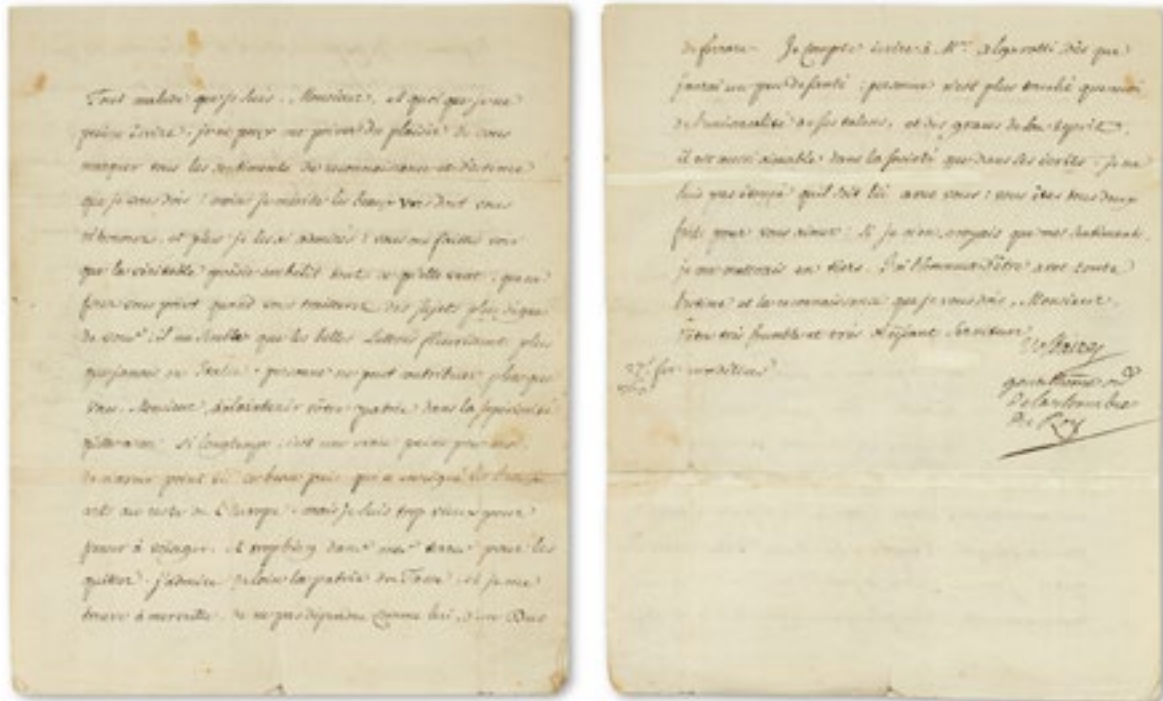 Tout malade que je suis, Monsieur, et quoi que je ne
puisse écrire, je ne puis me priver du plaisir de vous
marquer tous les sentiments de reconnaissance et d'estime
que je vous dois : moins je mérite les beaux vers dont vous
m'honorez, et plus je les ai admirés : vous me faittes voir
que la véritable poésie embélit tout ce qu'elle veut :
quand vous traiterez des sujets plus digne
de vous : il me semble que les belles Lettres fleurissent plus
que jamais en Italie. personne ne peut contribuer plus que
vous, Monsieur, à maintenir vôtre patrie dans la supériorité
si longtemps. c'est une vraie peine pour moi
de n'avoir point vû ce beau païs qui a enseigné les beaux
arts au reste de L'Europe. mais je suis trop vieux pour
penser à voyager, et trop bien dans mes terres pour les
quitter. j'admire de loin la patrie du Tasse, et je me
trouve à merveille de ne pas dépendre comme lui, d'un Duc
de ferrare. Je compte écrire à Mr. algarotti dès que
j'aurai un peu de santé : personne n'est plus touché que moi
de l'universalité de ses talens, et des graces de son esprit.
il est aussi aimable dans la societé que dans ses écrits. je ne
suis pas étonné qu'il soit lié avec vous : vous êtes tous deux
faits pour vous aimer : Si je n'en croyais que mes sentiments
je me mettrais en tiers. J'ai l'honneur d'être avec toute
l'estime et la reconnaissance que je vous dois, Monsieur,
Vôtre très humble et très obéissant Serviteur
Voltaire
27e fev aux délices
gentilhomme ord
de la chambre
du Roy